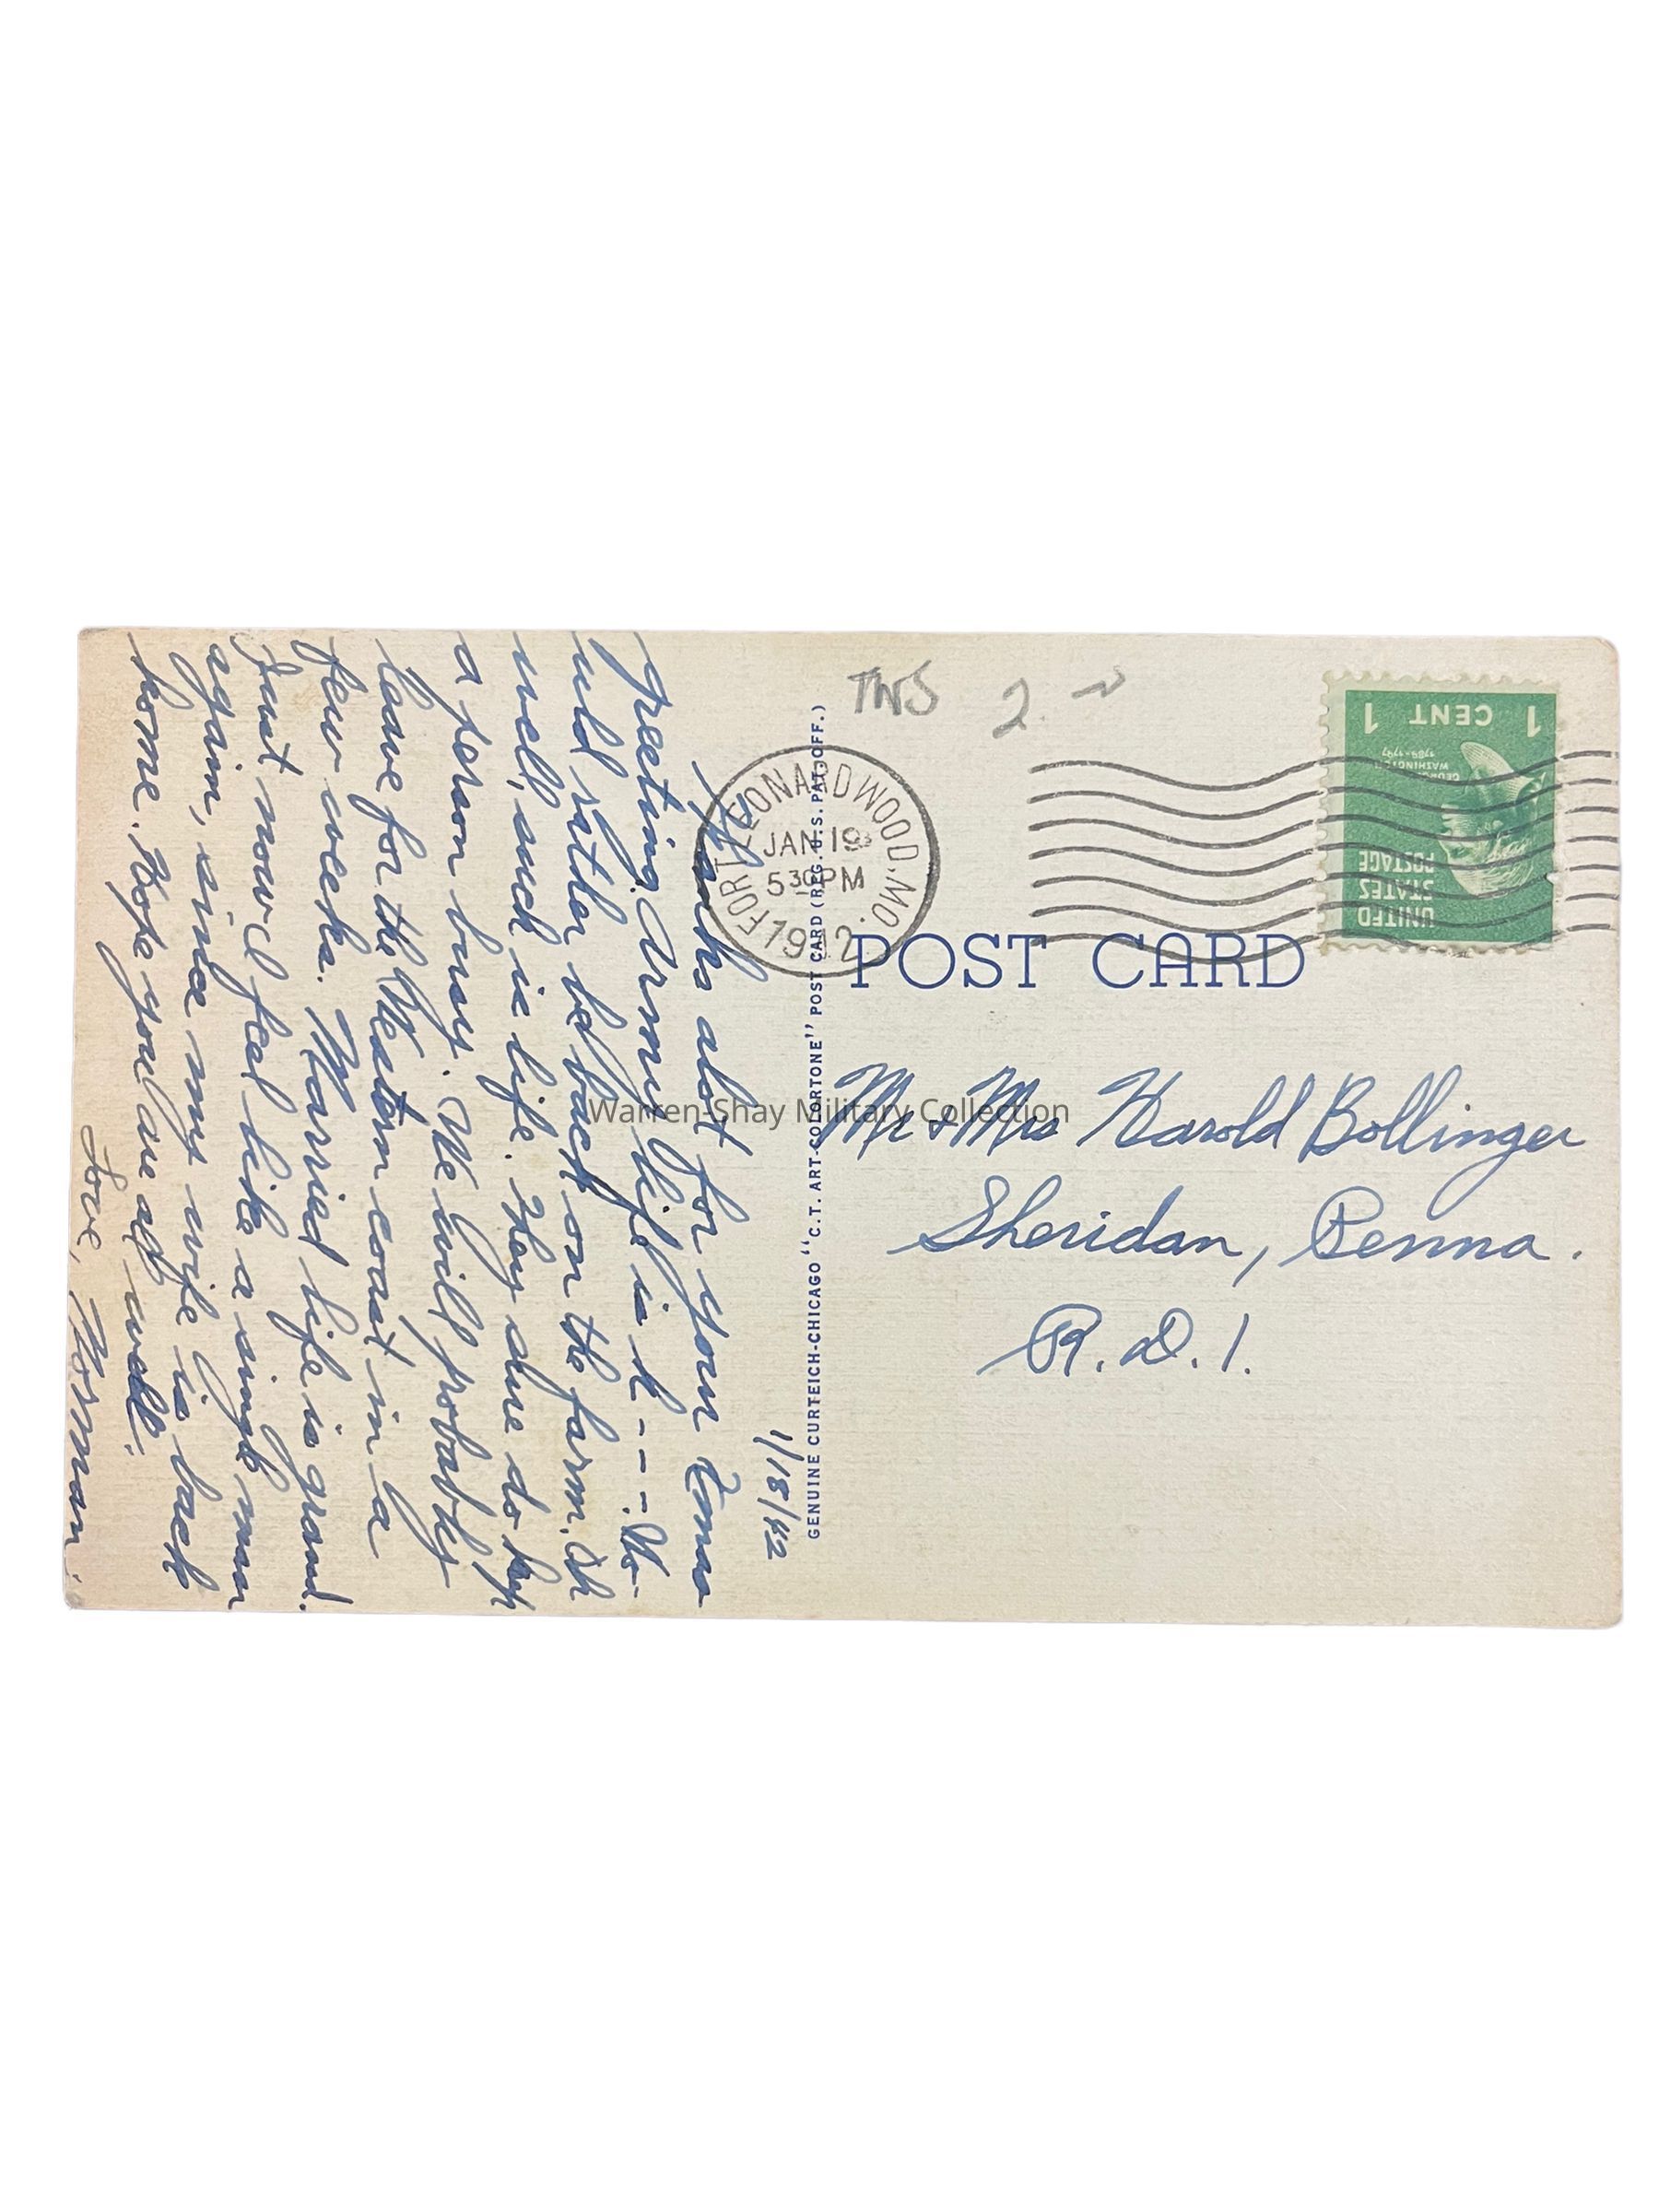 1/18/42
Thanks alot for your Xmas
greeting. Army life is h---. Wo-
uld rather be back on the farm. Oh
well, such is life. They sure do keep
a person busy. We will probably
leave for the Western coast in a
few weeks. Married life is grand.
Just now I feel like a single man
again, since my wife is back
home. Hope you are all well.
Love, Norman.
GENUINE CURTEICH-CHICAGO "C.T. ART-COLORTONE" POST CARD (REG. U.S. PAT. OFF.)
TWS 2
FORT LEONARD WOOD, MO.
JAN 19
530 PM
1942
1 CENT 1
GEORGE WASHINGTON
1789-1797
UNITED
STATES
POSTAGE
POST CARD
Mr & Mrs Harold Bollinger
Sheridan, Penna.
R. D. 1.
Warren-Shay Military Collection